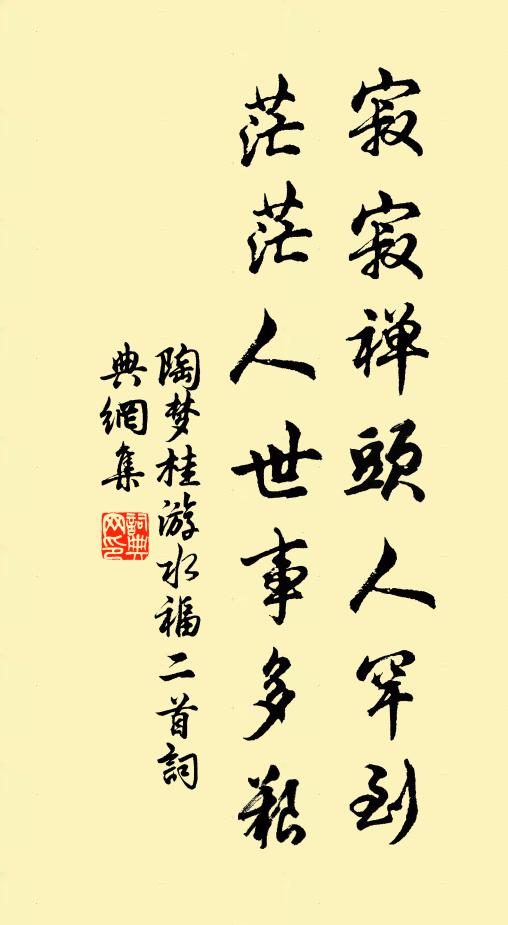 寂寂禅頭人罕到
茫茫人世事多艱
陶梦桂游水福二首詞
典網集
詞典
网印